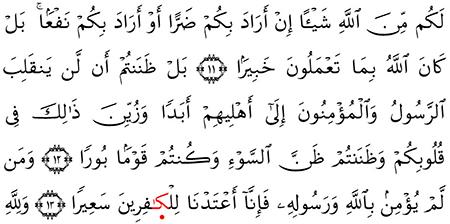 لَكُم مِّنَ ٱللَّهِ شَيْـًٔا إِنْ أَرَادَ بِكُمْ ضَرًّا أَوْ أَرَادَ بِكُمْ نَفْعَۢا ۚ بَلْ
كَانَ ٱللَّهُ بِمَا تَعْمَلُونَ خَبِيرًۢا ١١ بَلْ ظَنَنتُمْ أَن لَّن يَنقَلِبَ
ٱلرَّسُولُ وَٱلْمُؤْمِنُونَ إِلَىٰٓ أَهْلِيهِمْ أَبَدًا وَزُيِّنَ ذَٰلِكَ فِى
قُلُوبِكُمْ وَظَنَنتُمْ ظَنَّ ٱلسَّوْءِ وَكُنتُمْ قَوْمًۢا بُورًا ١٢ وَمَن
لَّمْ يُؤْمِنۢ بِٱللَّهِ وَرَسُولِهِۦ فَإِنَّآ أَعْتَدْنَا لِلْكَـٰفِرِينَ سَعِيرًا ١٣ وَلِلَّهِ